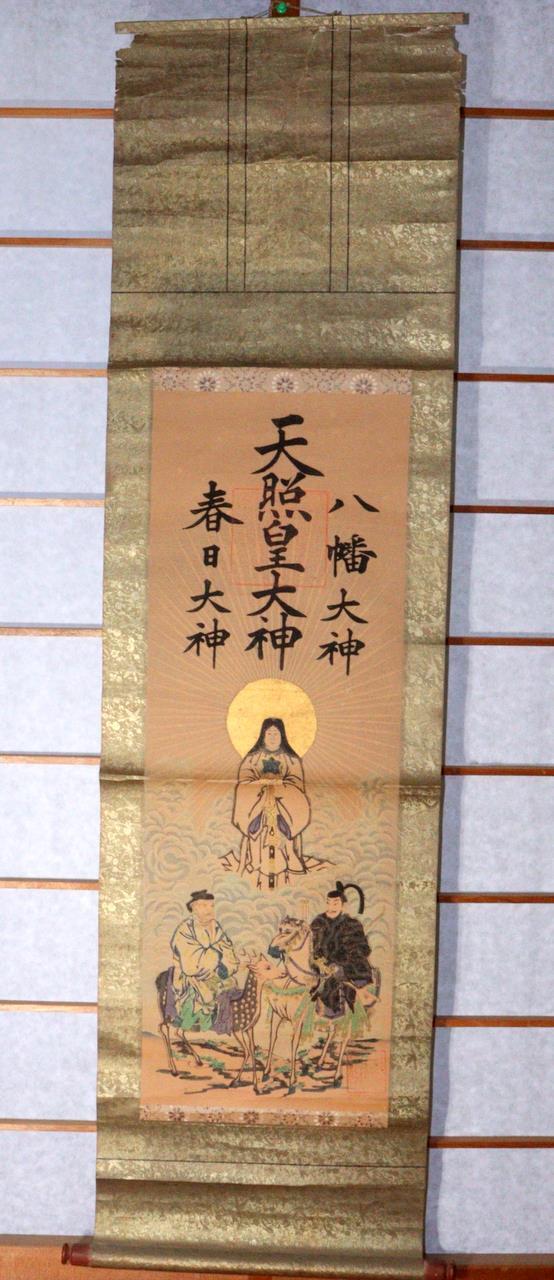 八幡大神
天照皇大神
春日大神